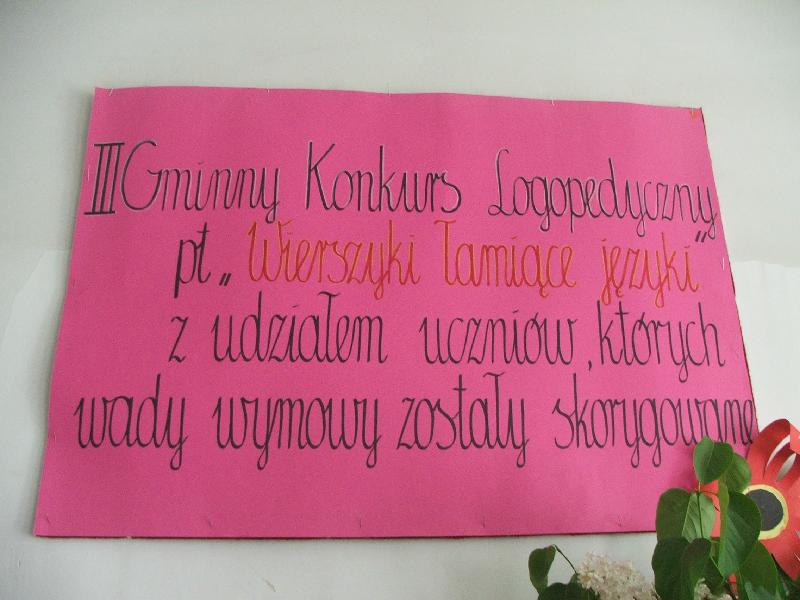 III Gminny Konkurs Logopedyczny
pt „Wierszyki łamiące języki"
z udziałem uczniów, których
wady wymowy zostały skorygowane